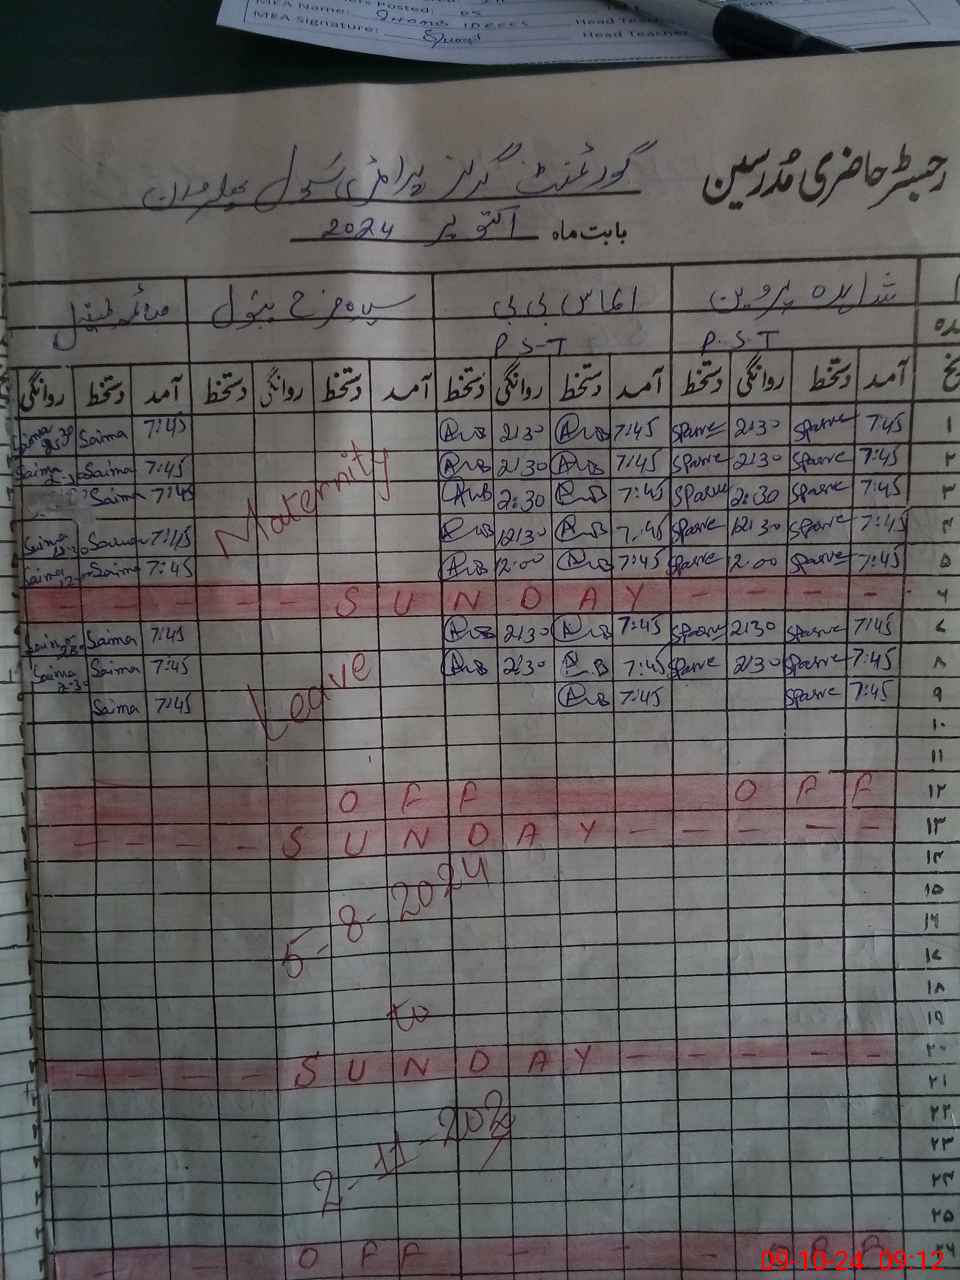 MEA Name:
MEA Signature: Head Teacher
رجسٹر حاضری مُدرسین گورنمنٹ گرلز پرائمری سکول
بابت ماہ اکتوبر 2024
شاہدہ پروین الماس بی بی سیدہ فرح بتول صائمہ
P.S.T P.S.T
آمد دستخط روانگی دستخط آمد دستخط روانگی دستخط آمد دستخط روانگی دستخط آمد دستخط روانگی
۱ 7:45 Sparve 2:30 Sparve 7:45 AuB 2:30 AuB 7:45 Saima Saima 2:30
۲ 7:45 Sparve 2:30 Sparve 7:45 AuB 2:30 AuB Maternity 7:45 Saima Saima
۳ 7:45 Sparve 2:30 Sparve 7:45 AuB 2:30 AuB 7:45 Saima
۴ 7:45 Sparve 12:30 Sparve 7:45 AuB 12:30 AuB 7:45 Saima Saima
۵ 7:45 Sparve 12:00 Sparve 7:45 AuB 12:00 AuB 7:45 Saima Saima
۶ - - - - - S U N D A Y - - - -
۷ 7:45 Sparve 2:30 Sparve 7:45 AuB 2:30 AuB 7:45 Saima Saima 2:30
۸ 7:45 Sparve 2:30 Sparve 7:45 AuB 2:30 AuB Leave 7:45 Saima Saima 2:30
۹ 7:45 Sparve 7:45 AuB 7:45 Saima
۱۰
۱۱
۱۲ O F F O F F
۱۳ - - - - S U N D A Y - - - - -
۱۴
۱۵ 5-8-2024
۱۶
۱۷
۱۸
۱۹ to
۲۰ - - - - S U N D A Y - - - - -
۲۱
۲۲
۲۳ 2-11-2024
۲۴
۲۵
۲۶ O F F - - - - - O F F
09-10-24 09:12